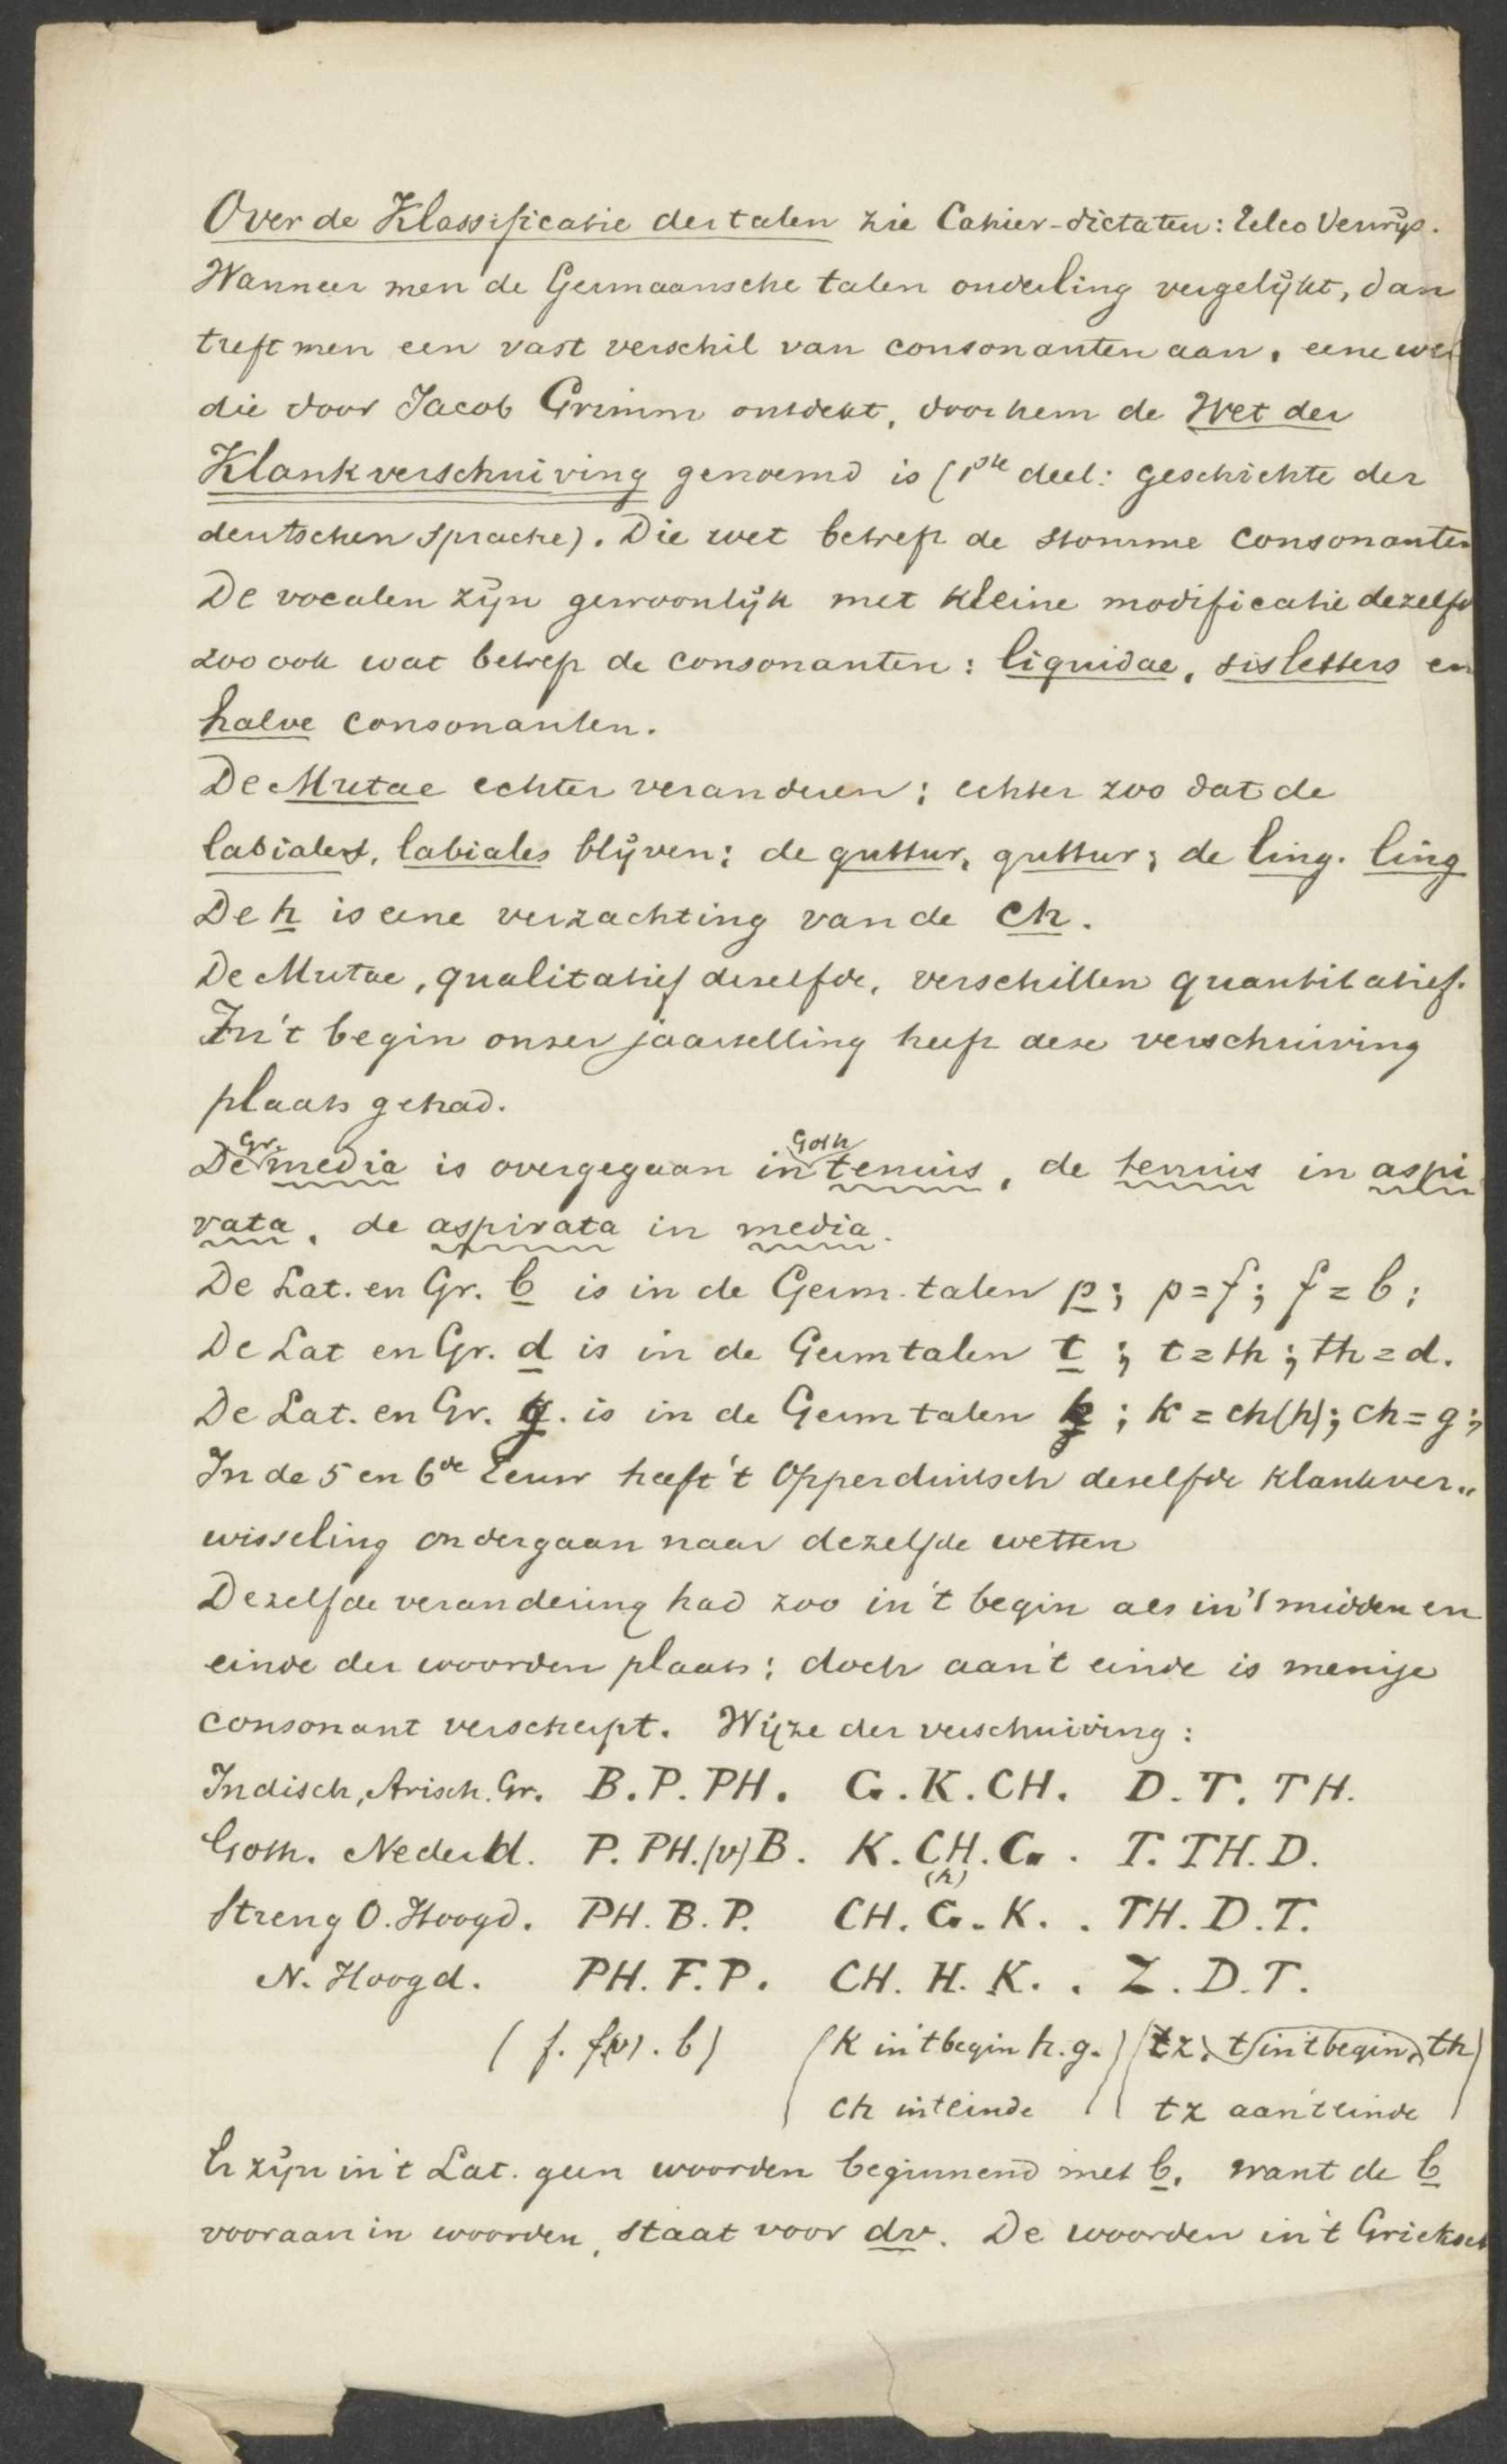 Over de Klassificatie der talen zie Cahier-dictaten: Eelco Verwijs.
Wanneer men de Germaansche talen onderling vergelijkt, dan
treft men een vast verschil van consonanten aan, eene wet
die door Jacob Grimm ontdekt, door hem de Wet der
Klankverschuiving genoemd is (1ste deel: geschichte der
deutschen Sprache). Die wet betreft de stomme consonanten
De vocalen zijn gewoonlijk met kleine modificatie dezelfde
zoo ook wat betreft de consonanten: liquidae, sisletters en
halve consonanten.
De Mutae echter veranderen; echter zoo dat de
labiales, labiales blijven; de guttur, guttur; de ling. ling
De h is eene verzachting van de ch.
De Mutae, qualitatief deselfde, verschillen quantitatief.
In 't begin onzer jaartelling heeft deze verschuiving
plaats gehad.
De Gr. media is overgegaan in Goth tenuis, de tenuis in aspi
rata, de aspirata in media.
De Lat. en Gr. b is in de Germ. talen p; p=f; f=b;
De Lat en Gr. d is in de Germ talen t; t=th; th=d.
De Lat. en Gr. g. is in de Germ talen k; k=ch(h); ch=g;
In de 5 en 6de Eeuw heeft 't Opperduitsch deselfde klankver„
wisseling ondergaan naar dezelfde wetten
Dezelfde verandering had zoo in 't begin als in 't midden en
einde der woorden plaats; doch aan 't einde is menige
consonant verscherpt. Wijze der verschuiving:
Indisch, Arisch. Gr. B. P. PH. G. K. CH. D. T. TH.
Goth. Nederd. P. PH.(v) B. K. CH. G. T. TH. D.
(h)
Streng O. Hoogd. PH. B. P. CH. G. K. . TH. D. T.
N. Hoogd. PH. F. P. CH. H. K. . Z. D. T.
(f. f(v). b) (K in 't begin h. g.) (tz, t (in 't begin) th)
ch in 't einde) (tz aan 't einde)
Er zijn in 't Lat. geen woorden beginnend met b, want de b
vooraan in woorden, staat voor dw. De woorden in 't Grieksch